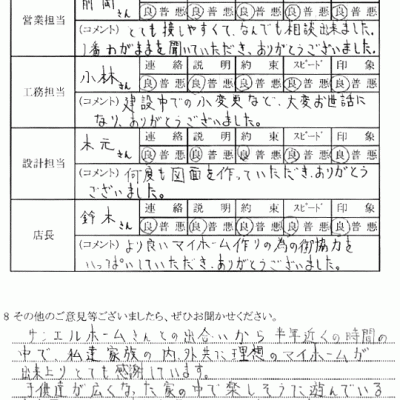 営業担当
前岡さん
良 普 悪 良 普 悪 良 普 悪 良 普 悪 良 普 悪
(コメント) とても接しやすくて、なんでも相談出来ました。
1番わがままを聞いていただき、ありがとうございました。
工務担当
小林さん
連絡 説明 約束 スピード 印象
良 普 悪 良 普 悪 良 普 悪 良 普 悪 良 普 悪
(コメント) 建設中での小変更など、大変お世話に
なり、ありがとうございました。
設計担当
木元さん
連絡 説明 約束 スピード 印象
良 普 悪 良 普 悪 良 普 悪 良 普 悪 良 普 悪
(コメント) 何度も図面を作っていただき、ありがとう
ございました。
店長
鈴木さん
連絡 説明 約束 スピード 印象
良 普 悪 良 普 悪 良 普 悪 良 普 悪 良 普 悪
(コメント) より良いマイホーム作りの為の御協力を
いっぱいしていただき、ありがとうございました。
8 その他のご意見等ございましたら、ぜひお聞かせください。
サンエルホームさんとの出合いから半年近くの時間の
中で、私達家族の内、外共に理想のマイホームが
出来上りとても感謝しています。
子供達が広くなった家の中で楽しそうに遊んでいる